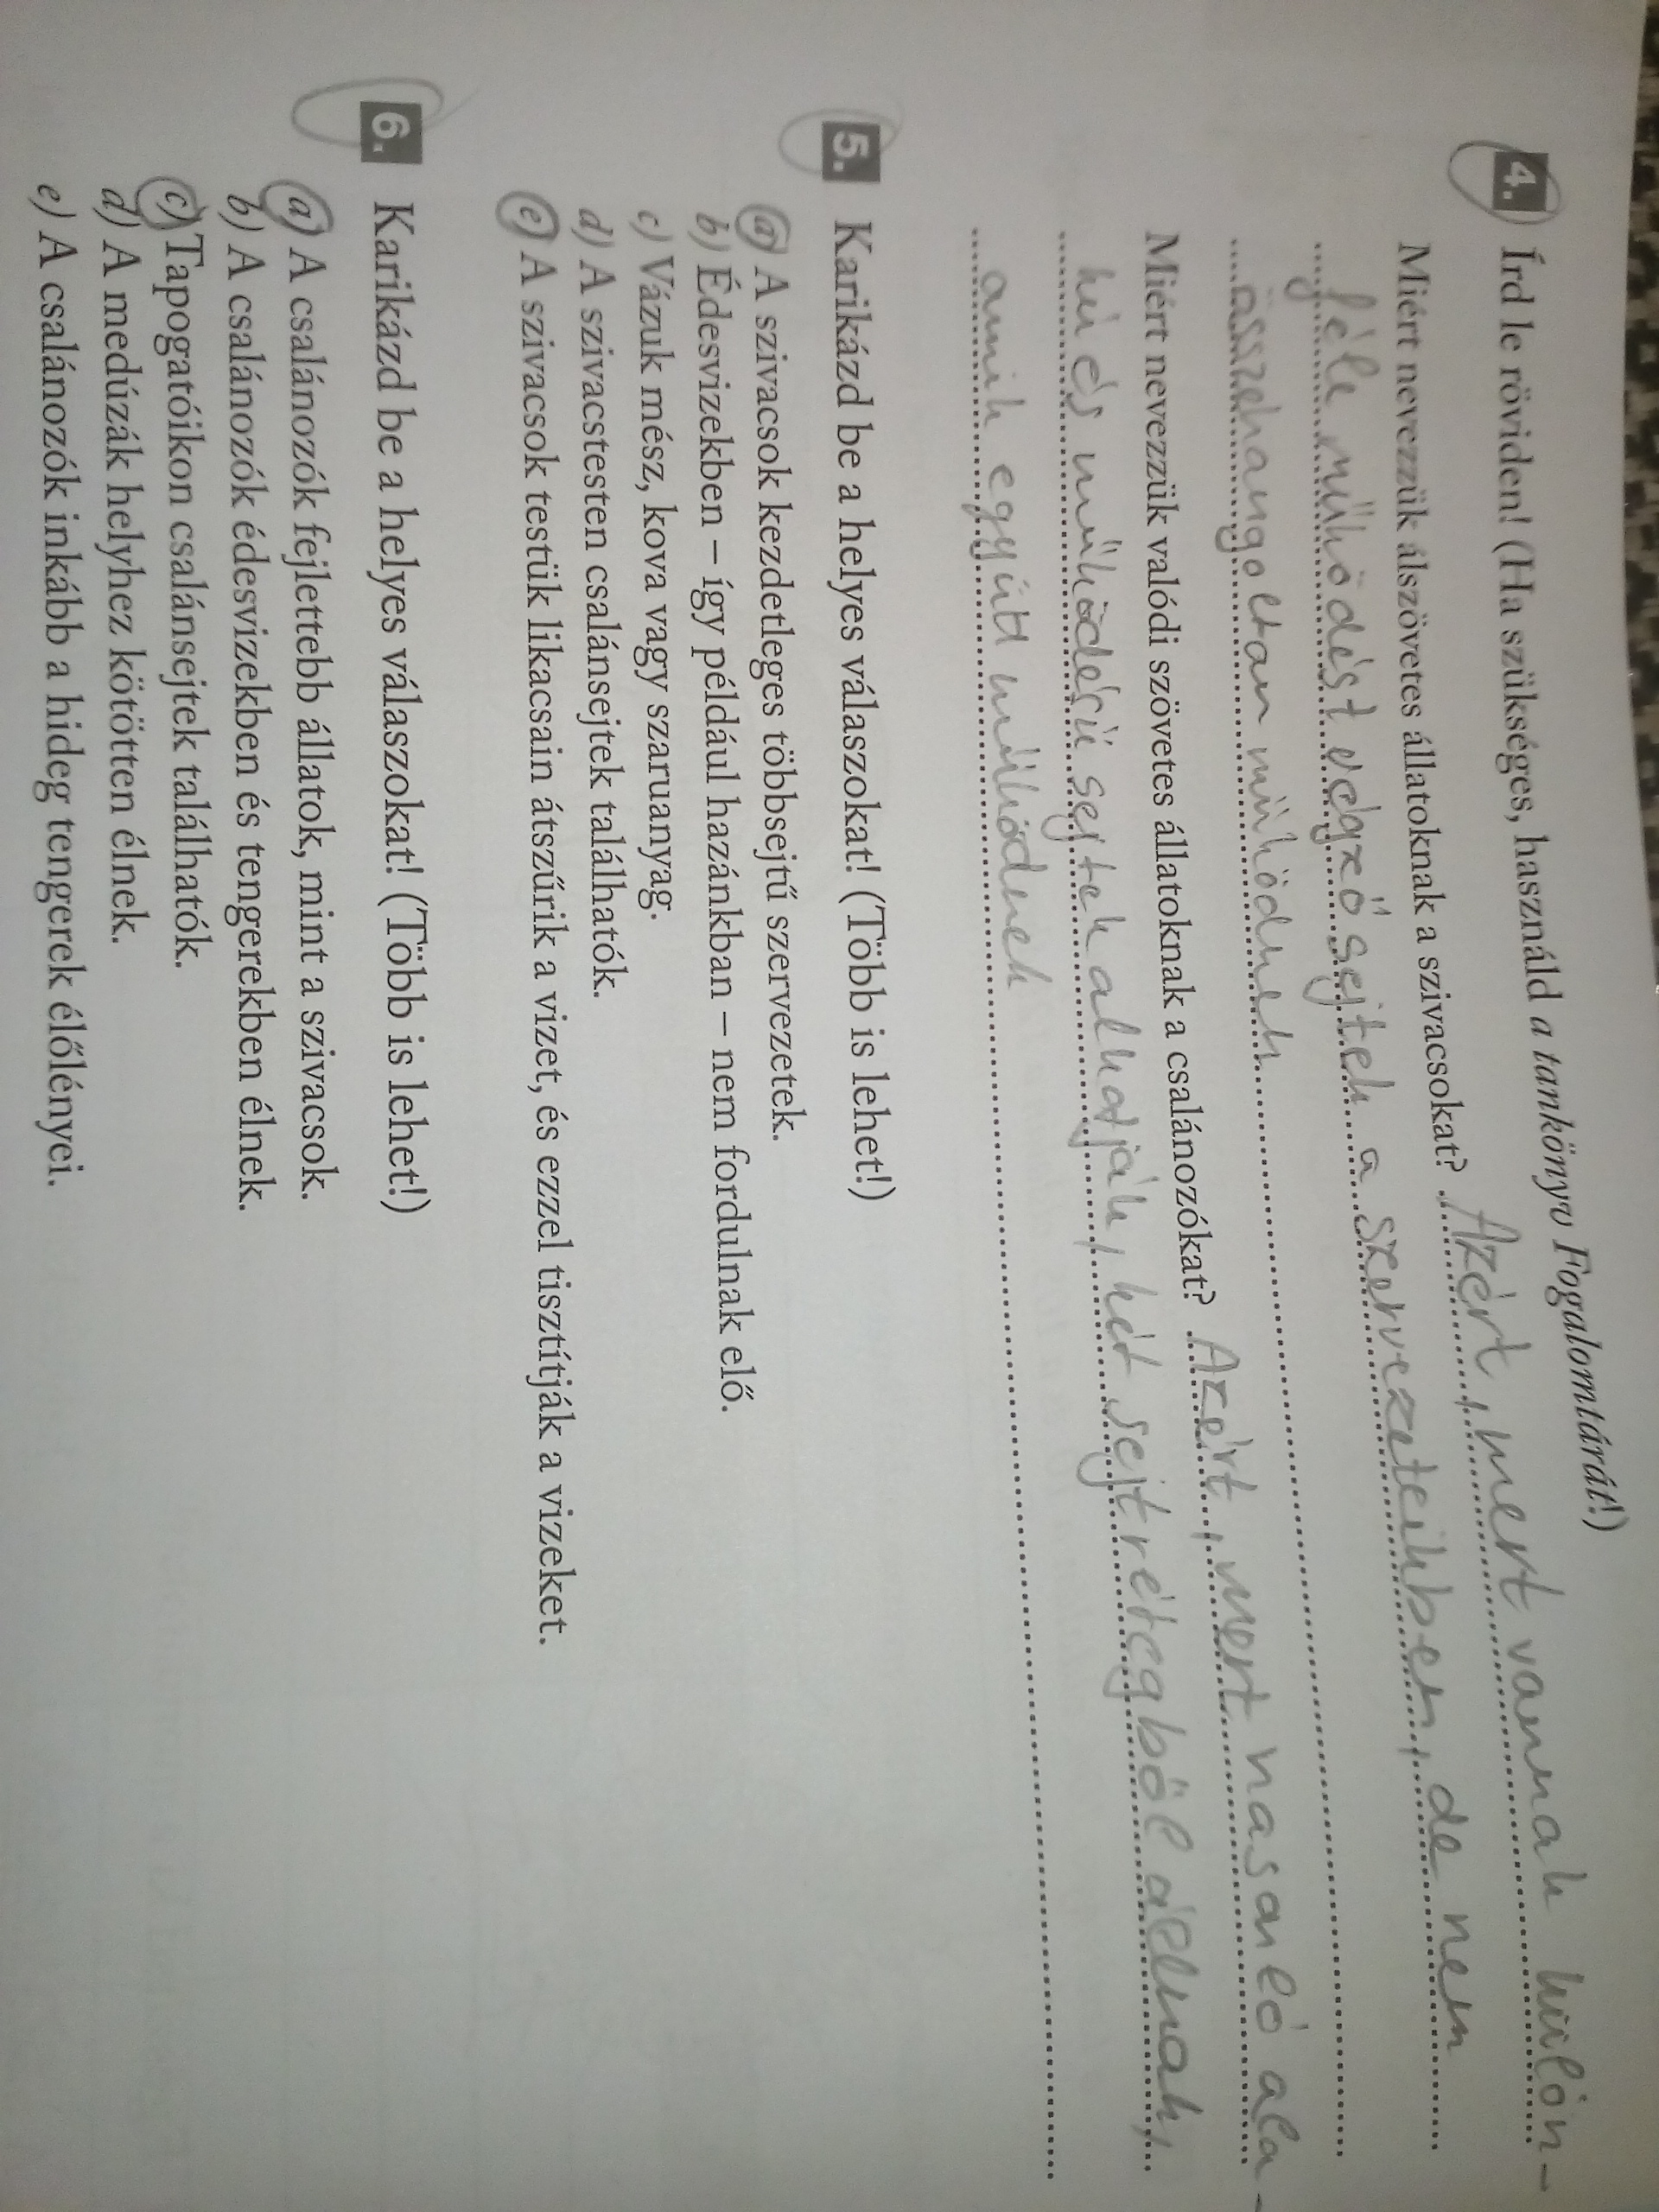 4. Írd le röviden! (Ha szükséges, használd a tankönyv Fogalomtárát!)
Miért nevezzük álszövetes állatoknak a szivacsokat? Azért, mert vannak külön-
féle működést végző sejtek a szervezeteikben, de nem
összehangoltan működnek
Miért nevezzük valódi szövetes állatoknak a csalánozókat? Azért, mert hasonló ala-
kú és működésű sejtek alkotják, két sejtrétegből állnak,
amik együtt működnek
5. Karikázd be a helyes válaszokat! (Több is lehet!)
a) A szivacsok kezdetleges többsejtű szervezetek.
b) Édesvizekben – így például hazánkban – nem fordulnak elő.
c) Vázuk mész, kova vagy szaruanyag.
d) A szivacstesten csalánsejtek találhatók.
e) A szivacsok testük likacsain átszűrik a vizet, és ezzel tisztítják a vizeket.
6. Karikázd be a helyes válaszokat! (Több is lehet!)
a) A csalánozók fejlettebb állatok, mint a szivacsok.
b) A csalánozók édesvizekben és tengerekben élnek.
c) Tapogatóikon csalánsejtek találhatók.
d) A medúzák helyhez kötötten élnek.
e) A csalánozók inkább a hideg tengerek élőlényei.